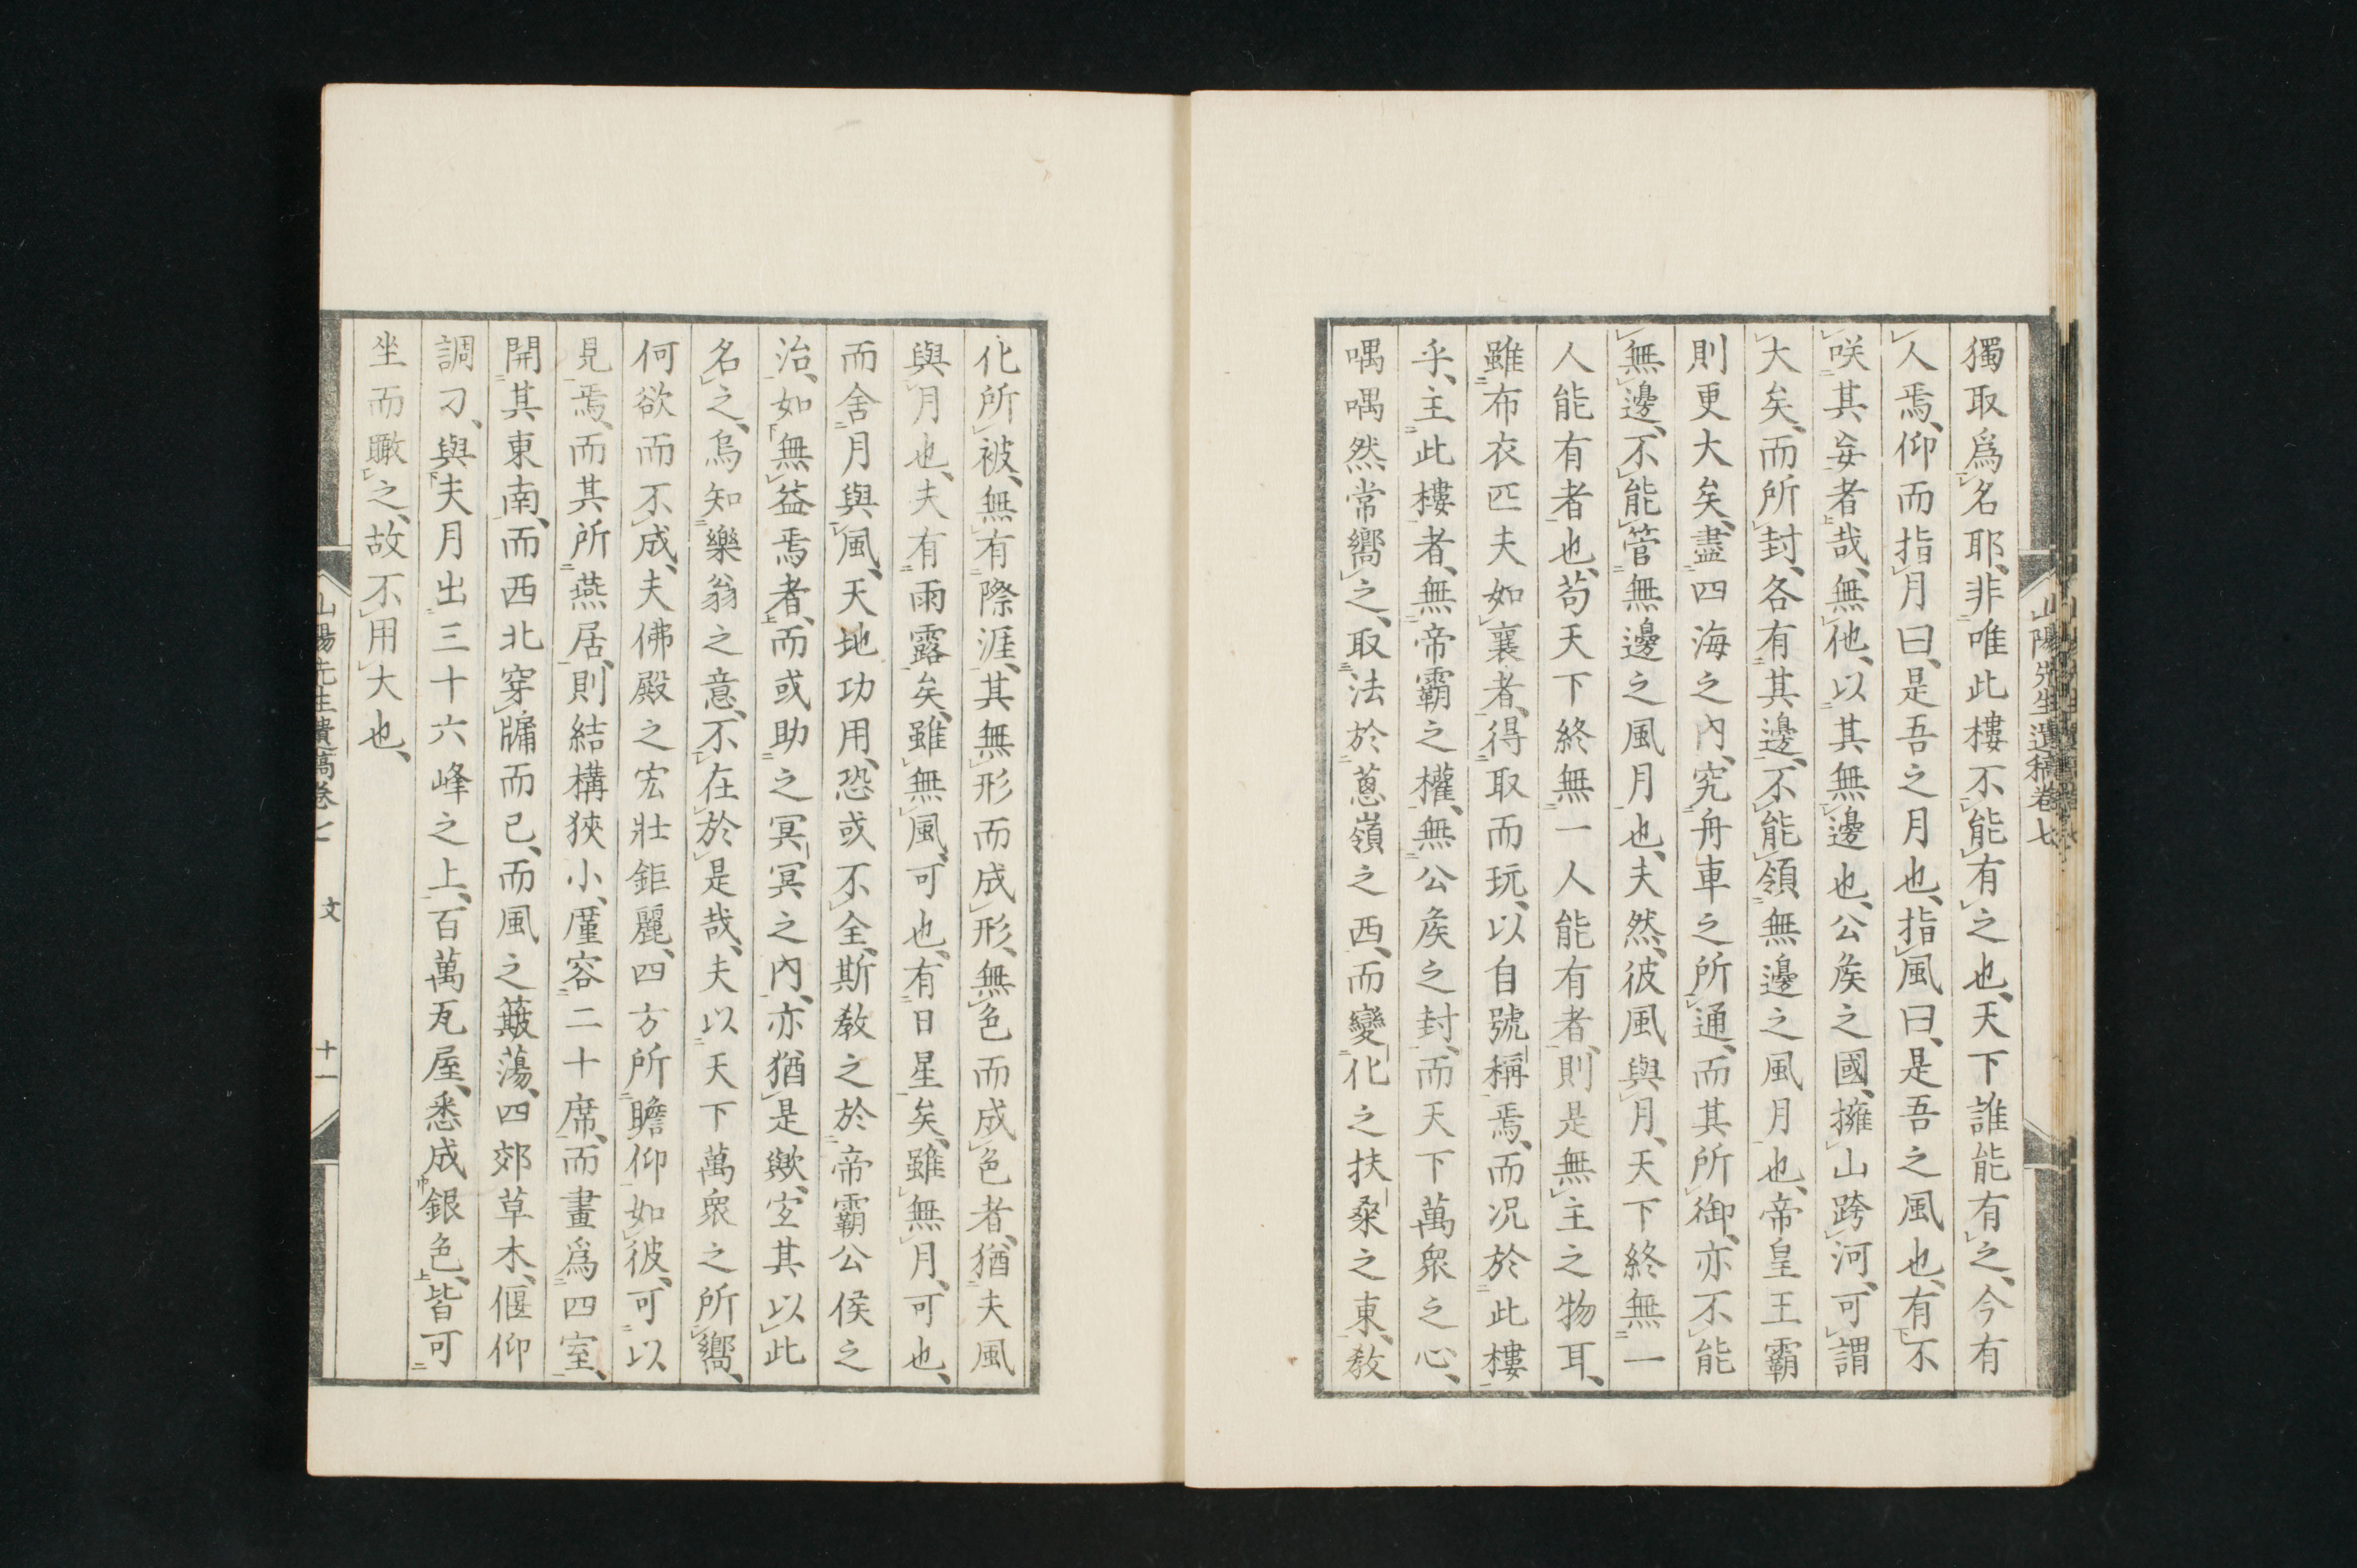 獨取爲名耶、非唯此樓不能有之也、天下誰能有之、今有
人焉、仰而指月曰、是吾之月也、指風曰、是吾之風也、有不
咲其妄者哉、無他、以其無邊也、公矦之國、擁山跨河、可謂
大矣、而所封、各有其邊、不能領無邊之風月也、帝皇王霸
則更大矣、盡四海之內、究舟車之所通、而其所御、亦不能
無邊、不能管無邊之風月也、夫然、彼風與月、天下終無一
人能有者也、苟天下終無一人能有者、則是無主之物耳、
雖布衣匹夫如襄者、得取而玩、以自號稱焉、而况於此樓
乎、主此樓者、無帝霸之權、無公矦之封、而天下萬衆之心、
喁喁然常嚮之、取法於蔥嶺之西、而變化之扶桒之東、敎
山陽先生遺稿卷七
化所被、無有際涯、其無形而成形、無色而成色者、猶夫風
與月也、夫有雨露矣、雖無風、可也、有日星矣、雖無月、可也、
而舍月與風、天地功用、恐或不全、斯敎之於帝霸公侯之
治、如無益焉者、而或助之冥冥之內、亦猶是歟、宐其以此
名之、烏知樂翁之意、不在於是哉、夫以天下萬衆之所嚮、
何欲而不成、夫佛殿之宏壯鉅麗、四方所瞻仰如彼、可以
見焉、而其所燕居、則結構狹小、厪容二十席、而畫爲四室、
開其東南、而西北穿牗而已、而風之簸蕩、四郊草木、偃仰
調刁、與夫月出三十六峰之上、百萬瓦屋、悉成銀色、皆可
坐而瞰之、故不用大也、
山陽先生遺稿卷七 文 十一